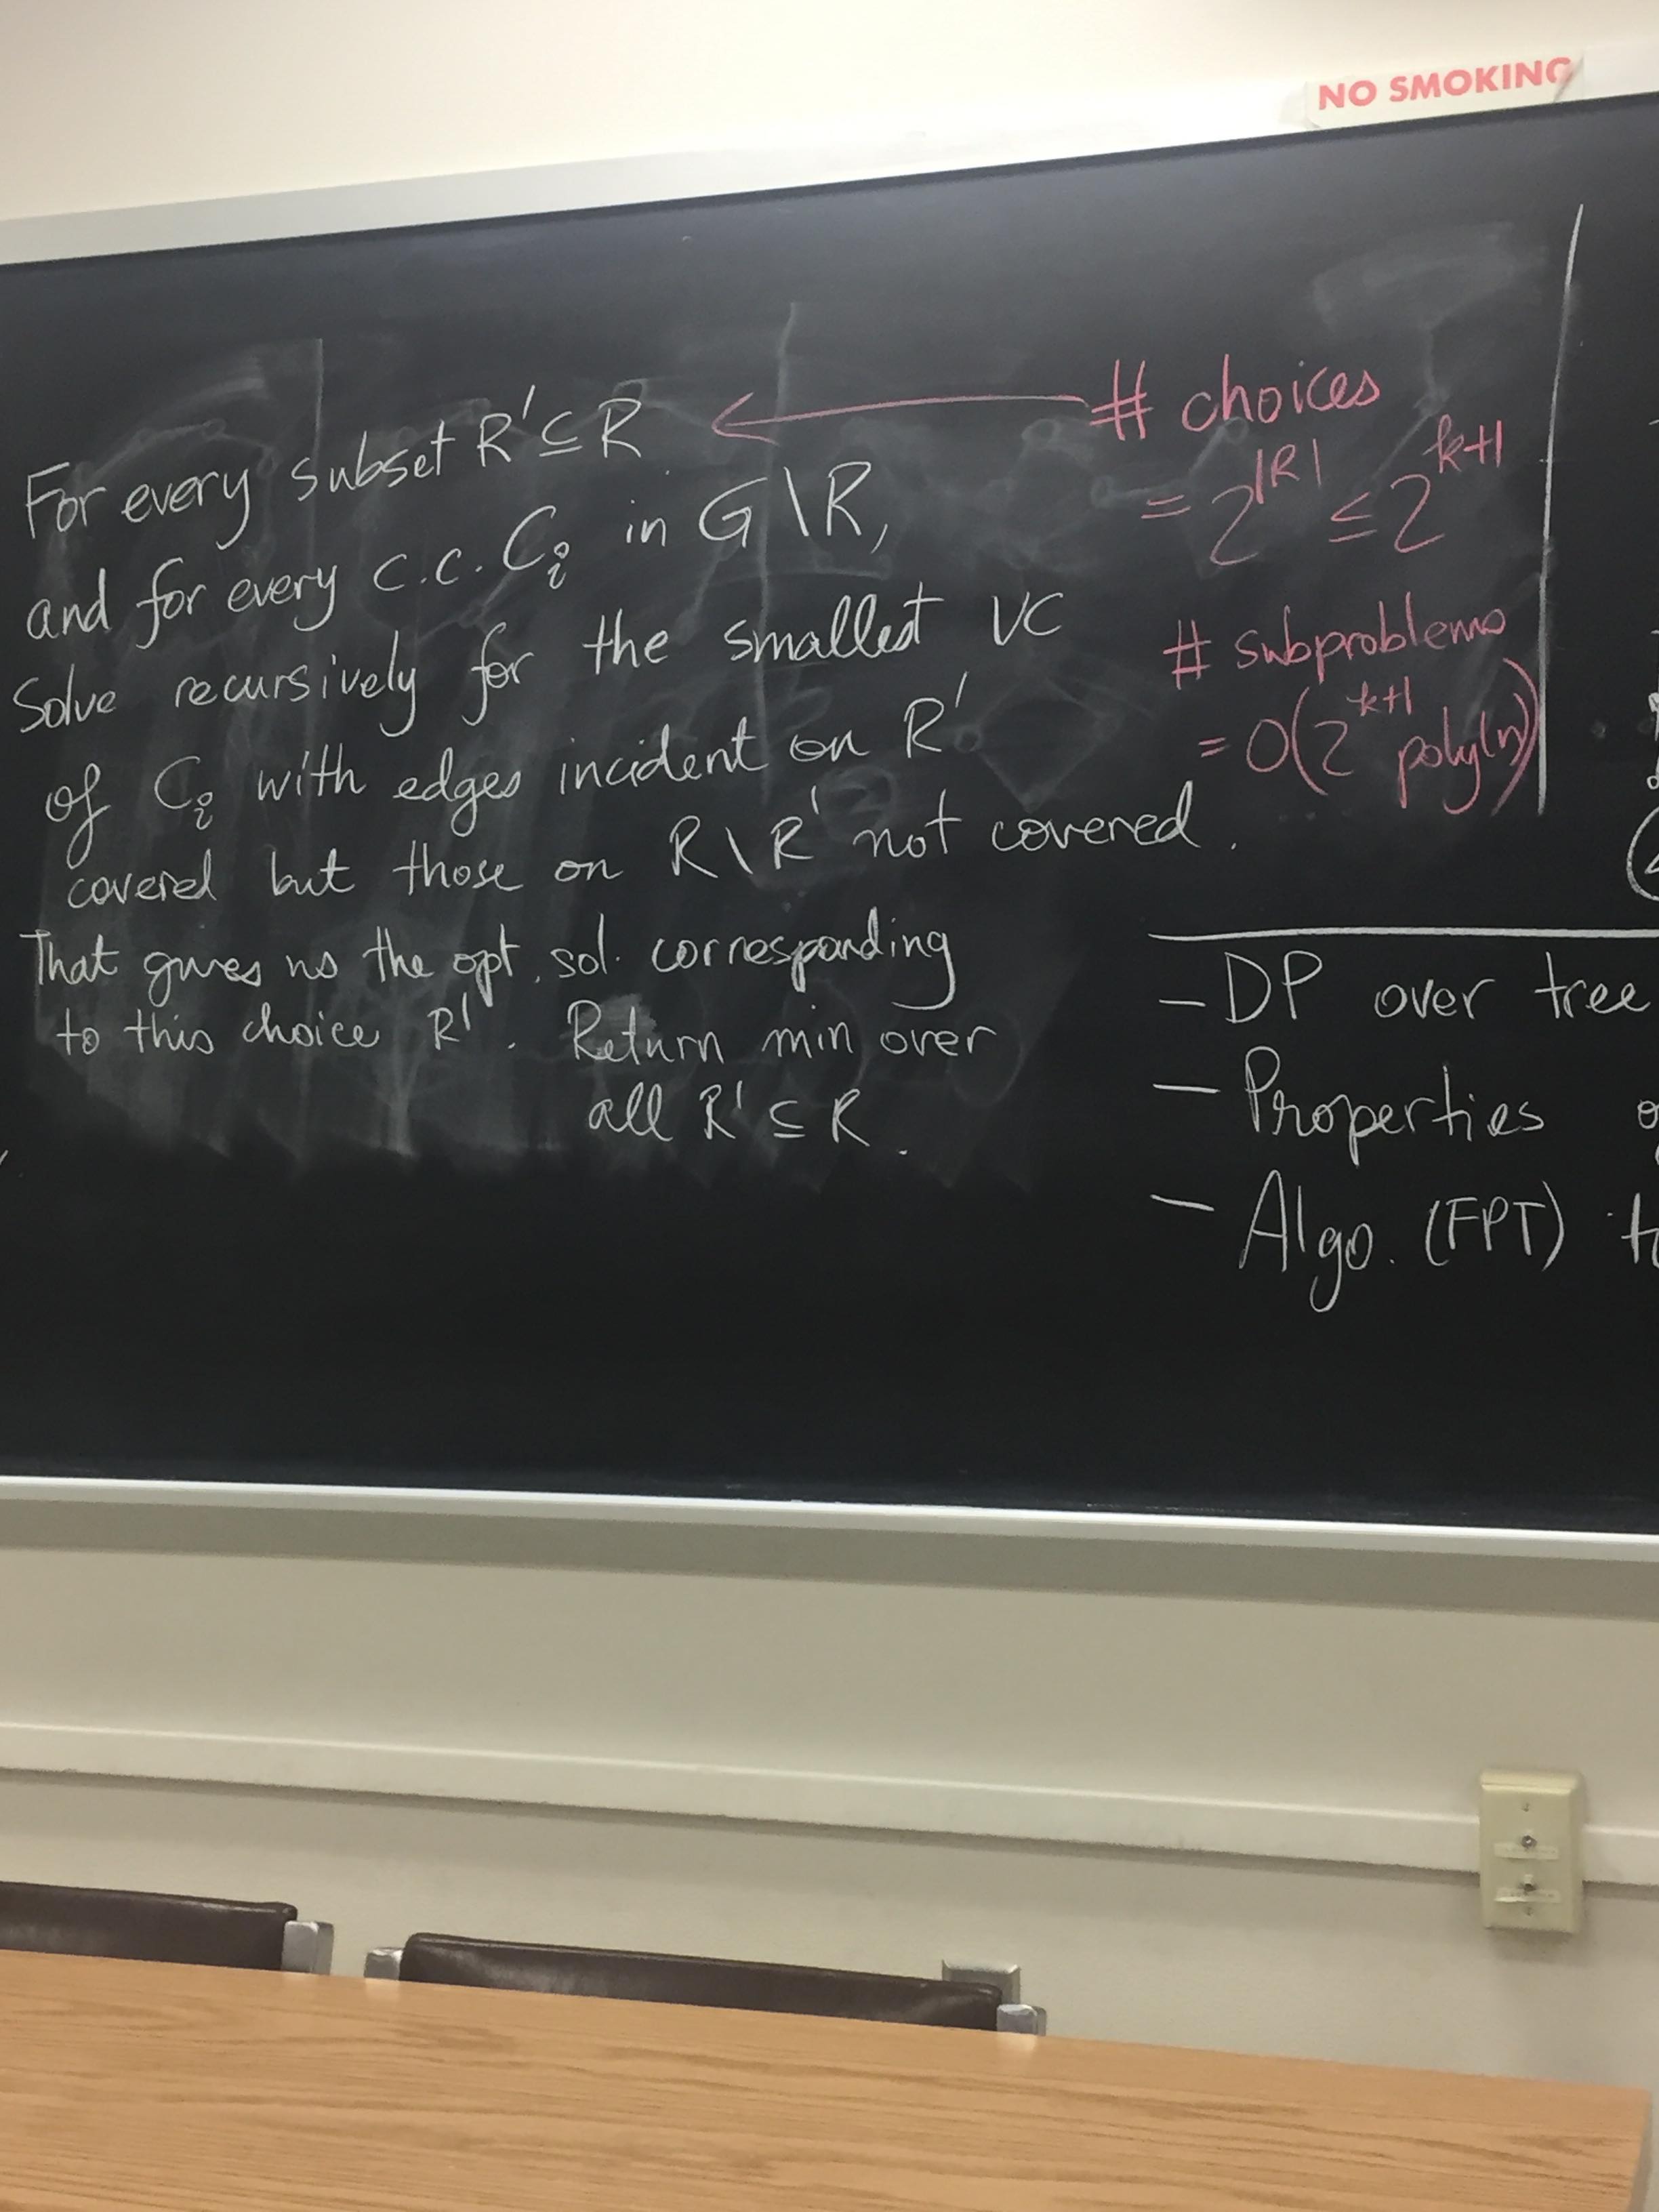 NO SMOKING
For every subset R' ⊆ R
and for every c.c. Cᵢ in G\R,
Solve recursively for the smallest VC
of Cᵢ with edges incident on R'
covered but those on R\R' not covered.
That gives us the opt. sol. corresponding
to this choice R'. Return min over
all R' ⊆ R.
# choices
= 2^|R| ≤ 2^k+1
# subproblems
= O(2^k+1 poly(n))
– DP over tree
– Properties
– Algo. (FPT)